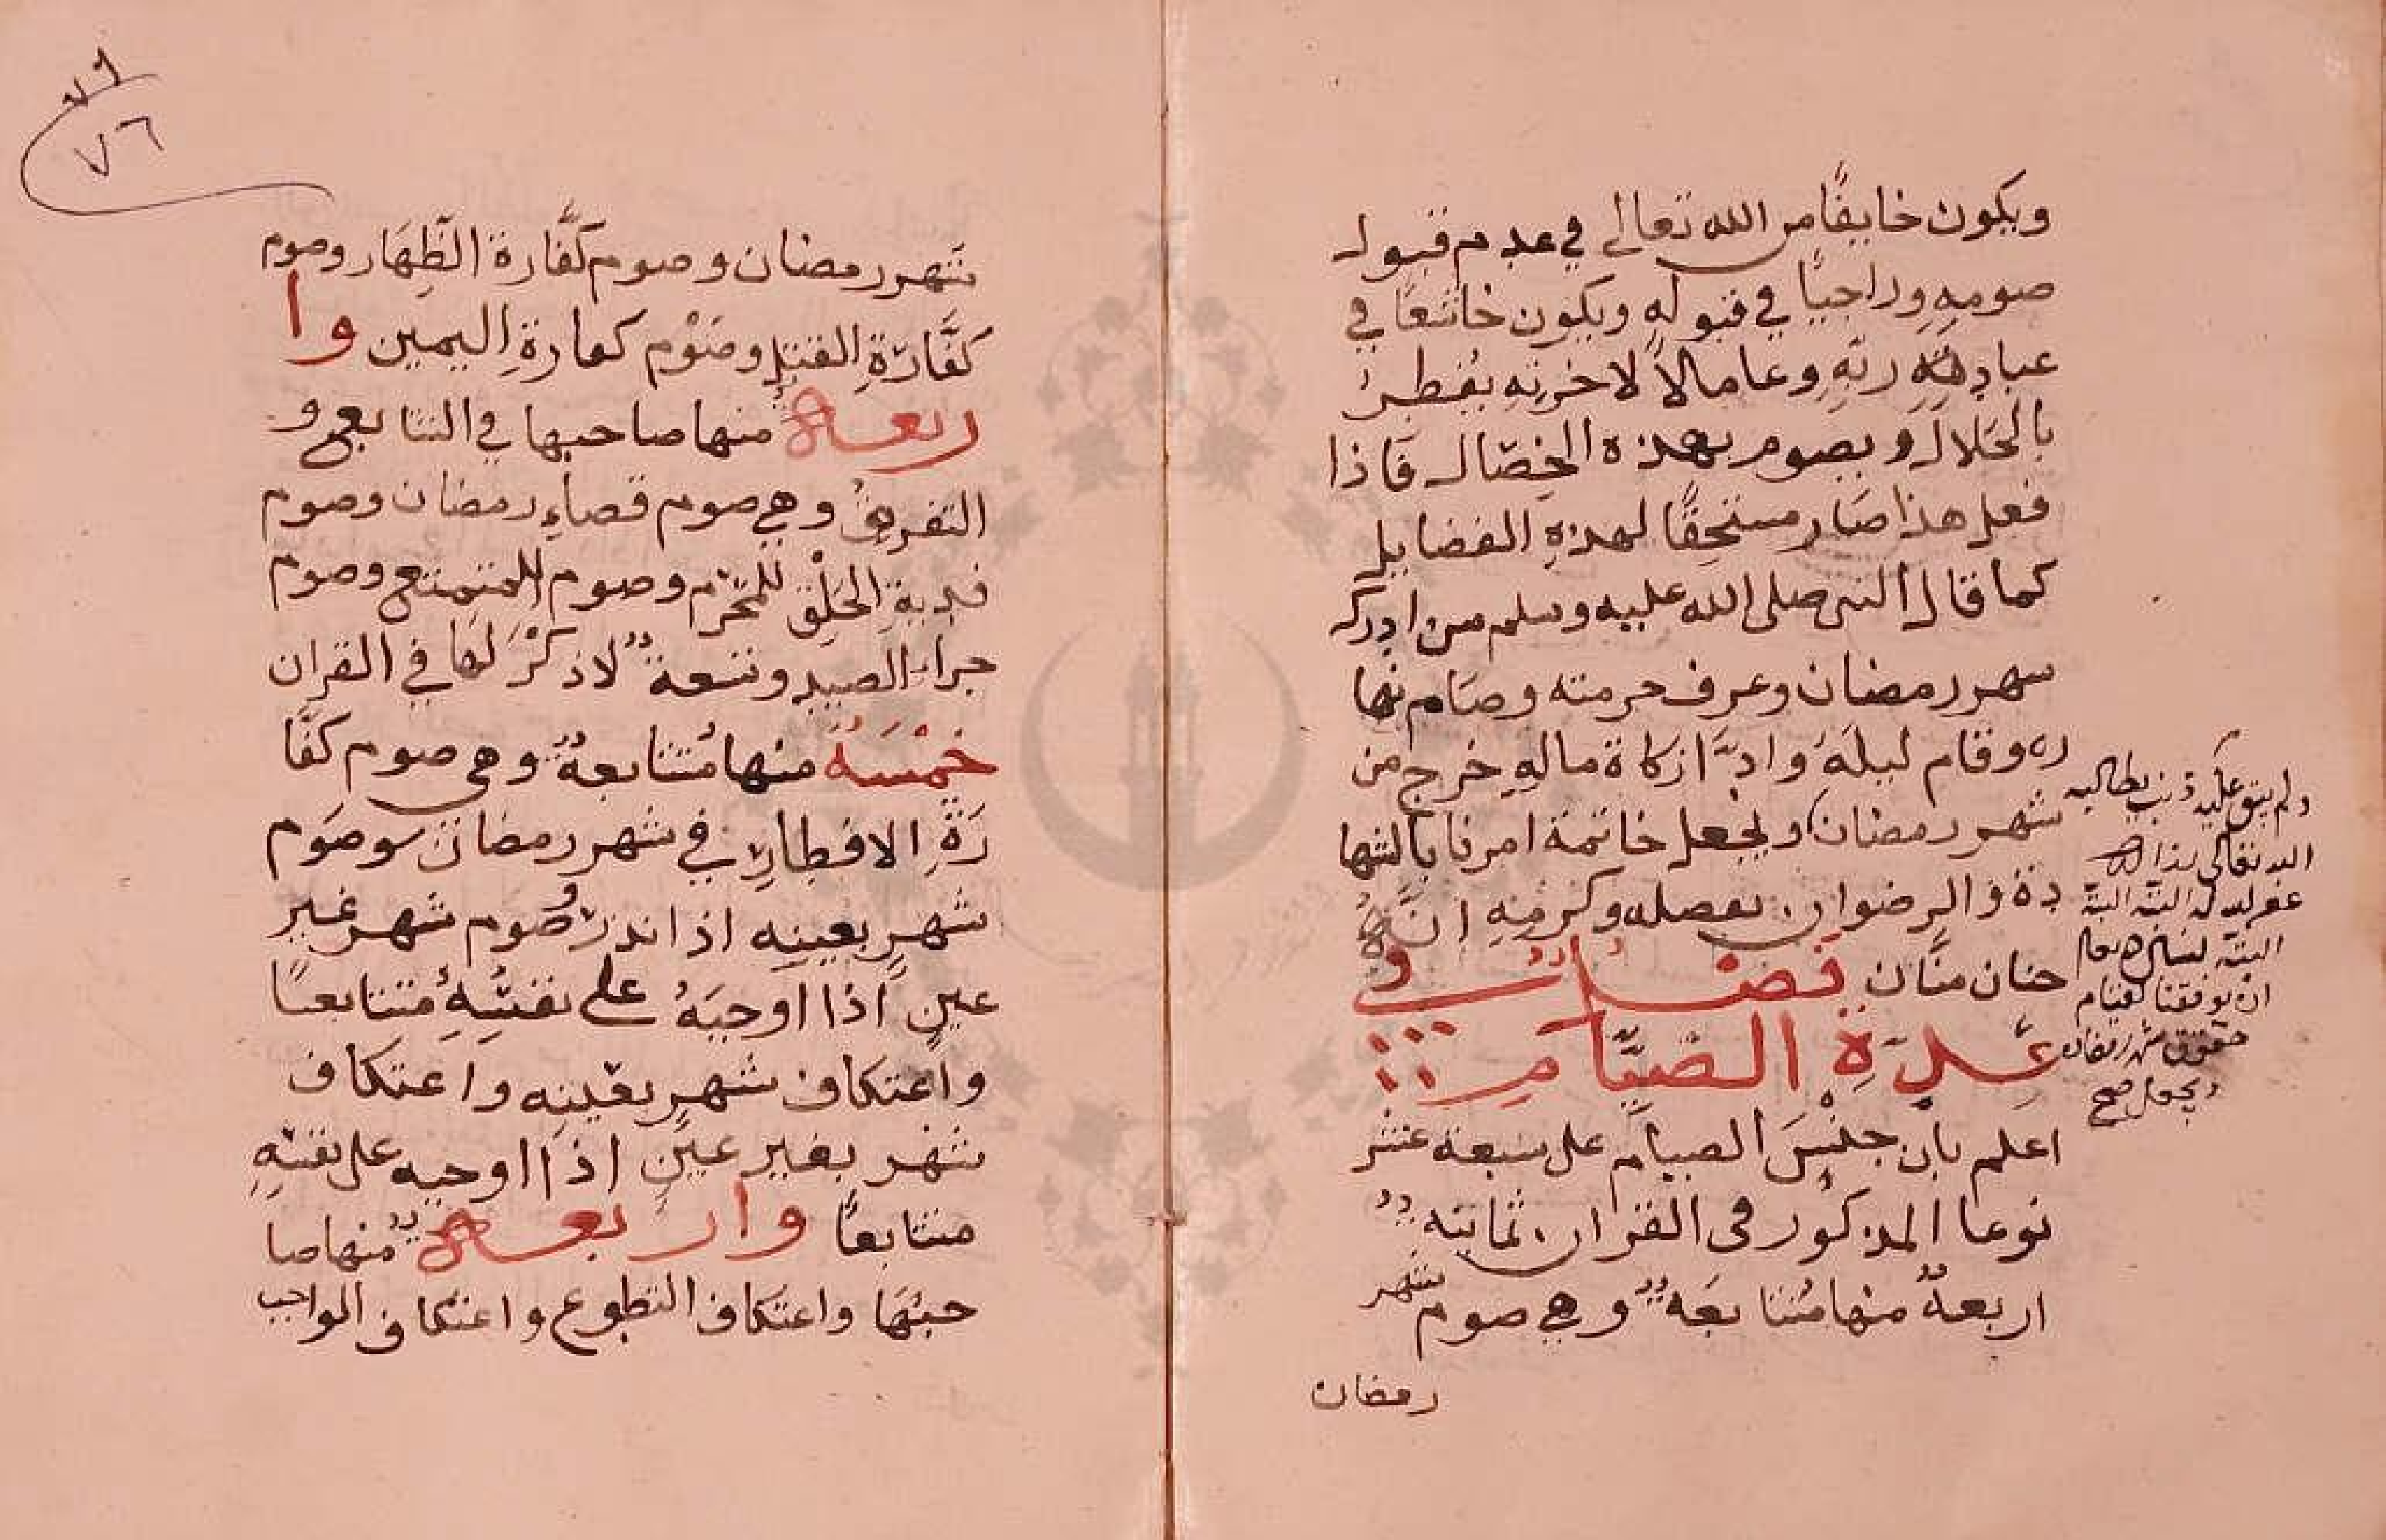 ويكون خايفًا من الله تعالى في عدم قبول
صومه وراجيًا في قبوله ويكون خاشعًا في
عبادته ربه وعاملاً لاخرته يفطر
بالحلال ويصوم بهذه الخصال فاذا
فعل هذا صار مستحقًا لهذه الفضايل
كما قال النبي صلى الله عليه وسلم من ادرك
شهر رمضان وعرف حرمته وصام نها
ره وقام ليله وادّا زكاة ماله خرج من
شهر رمضان ويجعل خاتمة امرنا بالشها
دة والرضوان بفضله وكرمه انه
حنان منّان فصل في
عدة الصيام
اعلم بان جنس الصيام على سبعة عشر
نوعا المذكور في القران ثمانية
اربعة منها متتابعة وهي صوم شهر
رمضان
ولم يبق عليه ذنب يطالبه
الله تعالى
غفر له البتة البتة
البتة نسأل
ان يوفقنا لقيام
حقوق شهر رمضان
ويجعل صح
٧٦
شهر رمضان وصوم كفّارة الظِّهَار وصوم
كفَّارَةِ القتل وصَوْم كفارةِ اليمين وا
ربعة منها صاحبها في التتابع و
التفريق وهي صوم قضاء رمضان وصوم
فدية الحَلْق للمحرم وصوم المتمتع وصوم
جزاء الصيد وتسعة لا ذكْرَ لها في القران
خمْسَة منها مُتتابعة وهي صوم كفّا
رَةِ الافطار في شهر رمضان وصَوم
شهرٍ بعينِه اذا نذر وصوم شهر غير
عينٍ اذا اوجبَهُ على نفسِه مُتتابعًا
واعتكاف شهرٍ بعينِه واعتكاف
شهر بغير عينٍ اذا اوجبه على نفسِهِ
متتابعًا واربعة منها صا
حبُهَا واعتكاف التطوع واعتكاف الواجب